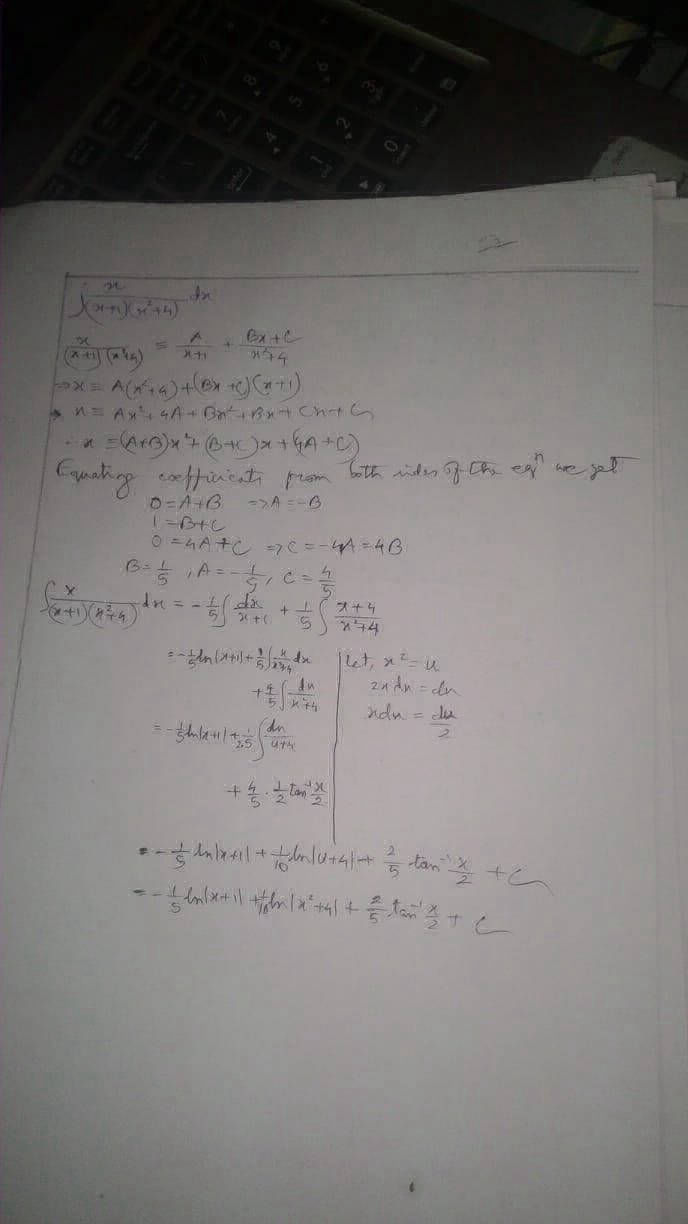 ∫ x/((x+1)(x²+4)) dx
x/((x+1)(x²+4)) ≡ A/(x+1) + (Bx+C)/(x²+4)
⇒ x ≡ A(x²+4)+(Bx+C)(x+1)
x ≡ Ax²+4A+Bx²+Bx+Cx+C
∴ x ≡ (A+B)x²+(B+C)x+(4A+C)
Equating coefficients from both sides of the eqⁿ we get
0 = A+B ⇒ A = -B
1 = B+C
0 = 4A+C ⇒ C = -4A = 4B
B = 1/5, A = -1/5, C = 4/5
∫ x/((x+1)(x²+4)) dx = -1/5 ∫ dx/(x+1) + 1/5 ∫ (x+4)/(x²+4)
= -1/5 ln|x+1| + 1/5 ∫ x/(x²+4) dx
+ 4/5 ∫ dx/(x²+4)
= -1/5 ln|x+1| + 1/2.5 ∫ du/(u+4)
+ 4/5 · 1/2 tan⁻¹ x/2
Let, x² = u
2x dx = du
x dx = du/2
= -1/5 ln|x+1| + 1/10 ln|u+4| + 2/5 tan⁻¹ x/2 + C
= -1/5 ln|x+1| + 1/10 ln|x²+4| + 2/5 tan⁻¹ x/2 + C
7
8
9
4
5
6
1
2
3
0